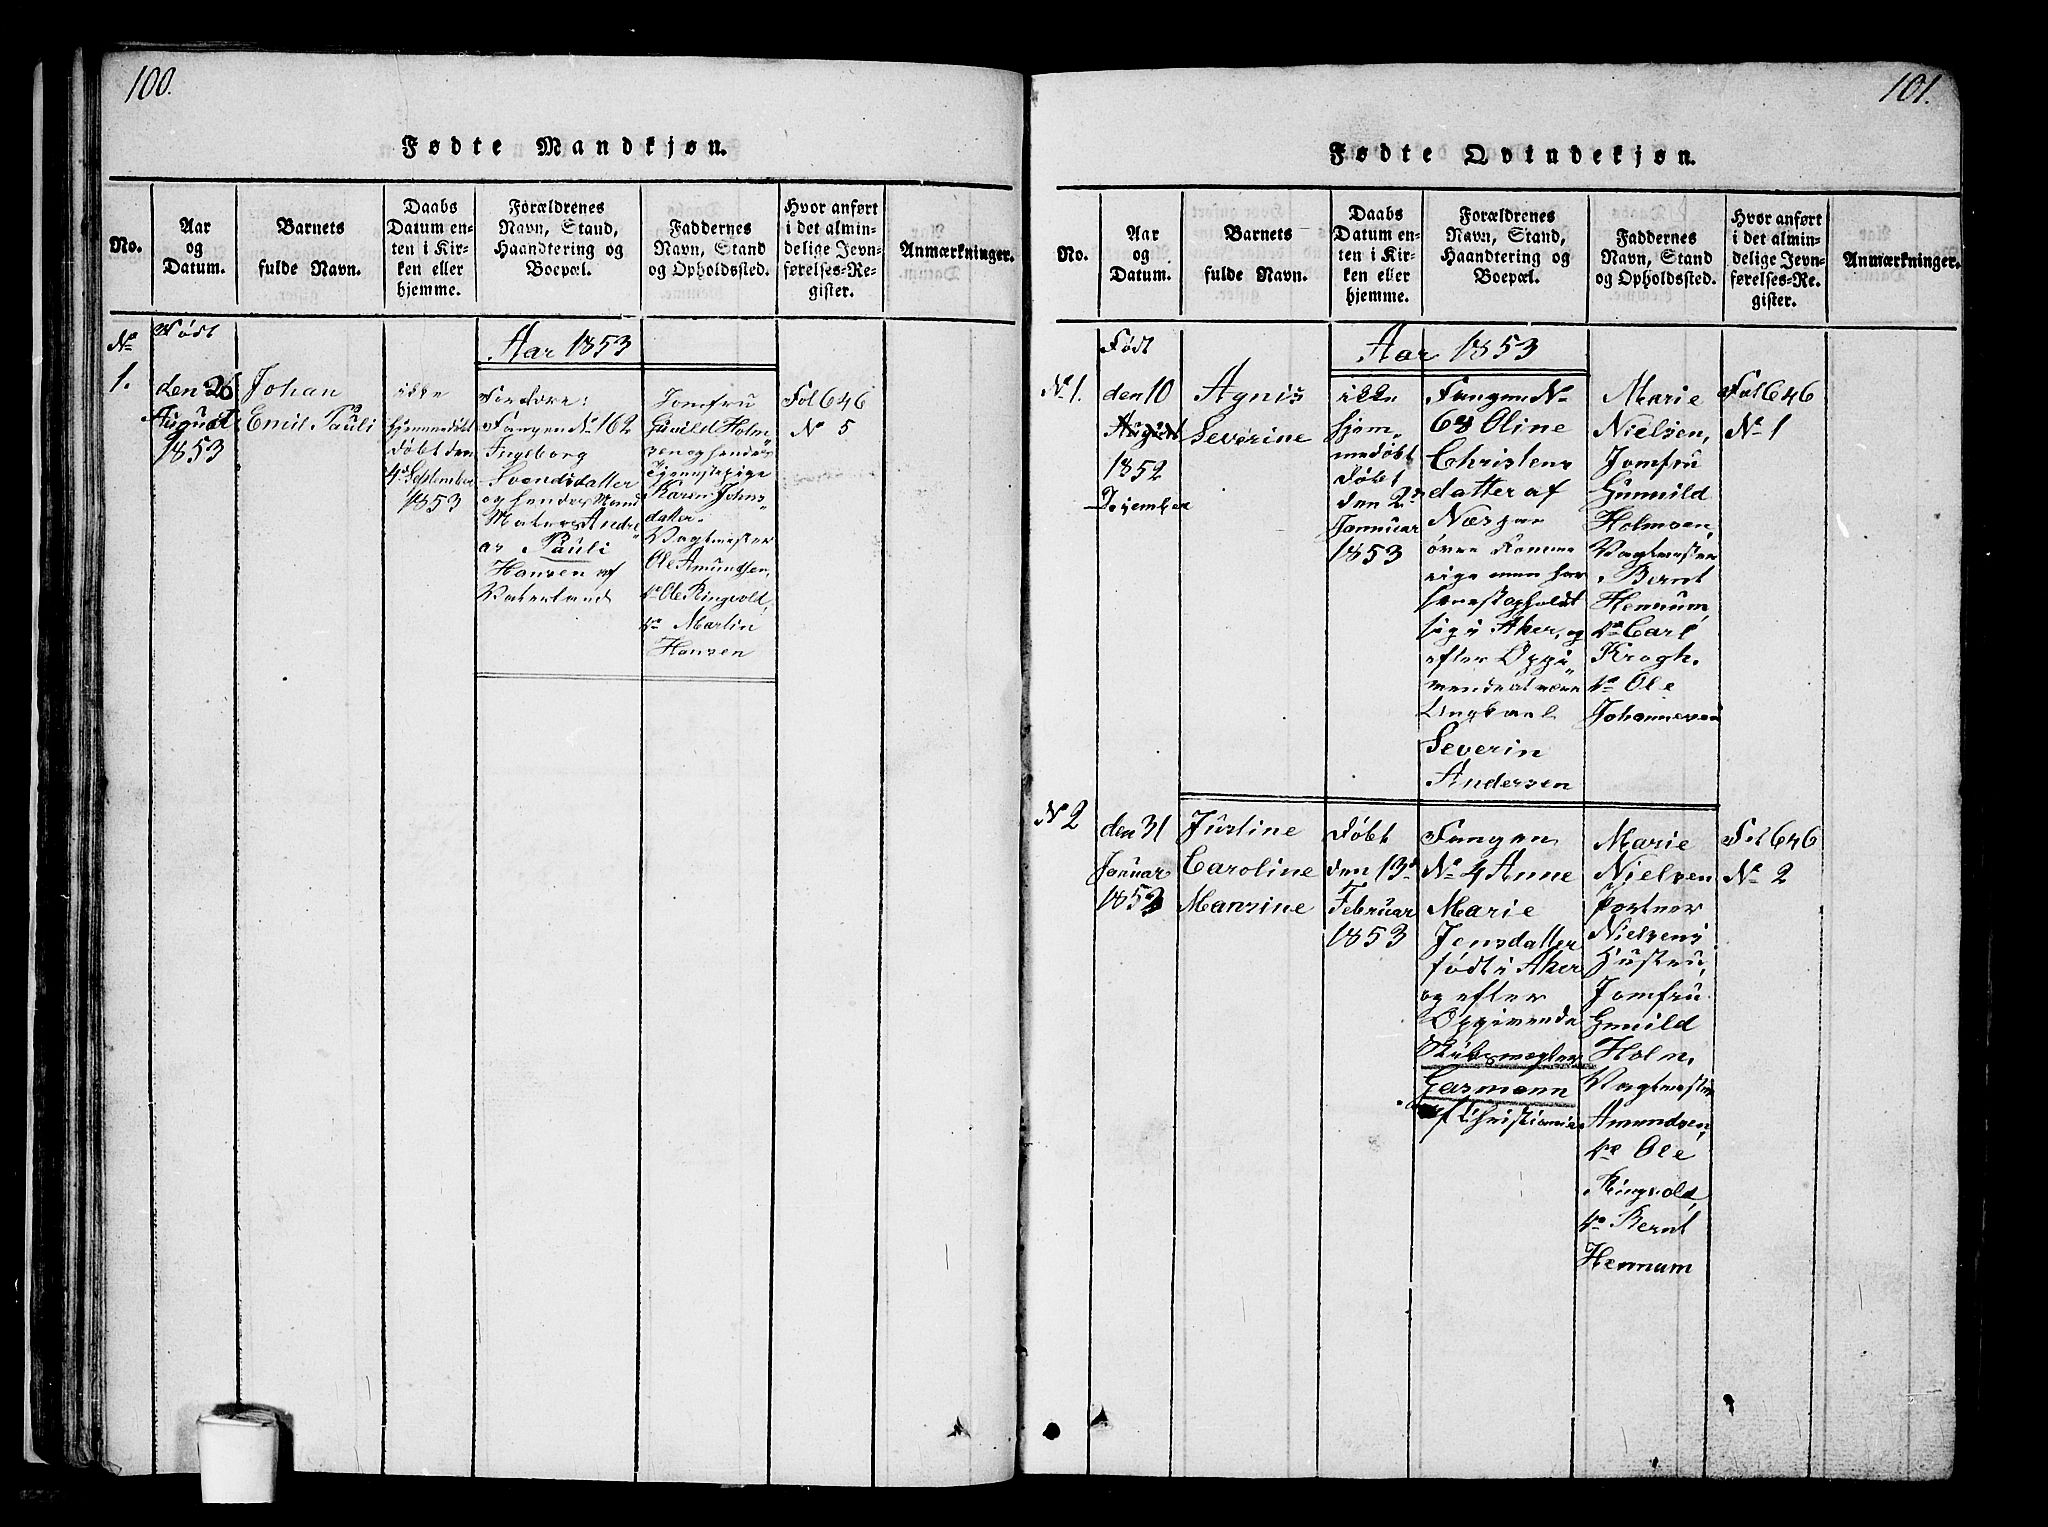 100.
Fødte Mandkjøn.
No.
Aar
og
Datum.
Barnets
fulde Navn.
Daabs
Datum en-
ten i Kir-
ken eller
hjemme.
Forældrenes
Navn, Stand,
Haandtering og
Boepæl.
Faddernes
Navn, Stand
og Opholdssted.
Hvor anført
i det almin-
delige Jevn-
førelses-Re-
gister.
Anmærkninger.
Aar 1853
No
1.
Født
den 26
August
1853
Johan
Emil Pauli
ikke
hjemmedøbt
døbt den
4de September
1853
Forældre:
Fangen No 162
Ingeborg
Svendsdatter
og hendes Mand
Andre
as Pauli
Hansen af
Vaterland
Jomfru
Gunild Holm
sen og hendes
Tjenestepige
Karen Johns
datter.
Vagtmester
Ole Amundsen,
do Ole Ringvold,
do Martin
Hansen
Fol 646
No 5
101.
Fødte Qvindekjøn.
No.
Aar
og
Datum.
Barnets
fulde Navn.
Daabs
Datum en-
ten i Kir-
ken eller
hjemme.
Forældrenes
Navn, Stand,
Haandtering og
Boepæl.
Faddernes
Navn, Stand
og Opholdssted.
Hvor anført
i det almin-
delige Jevn-
førelses-Re-
gister.
Anmærkninger.
Aar 1853
No 1.
Født
den 10
August
1852
Desember
Agnis
Severine
ikke
hjem
medøbt
døbt
den 2den
Januar
1853
Fangen No
68 Oline
Christens
datter af
Næs
øvre Romme
rige men har
senest opholdt
sig i Aker, og
efter Oppi
vende at være
Ungkarl
Severin
Andersen
Marie
Nielsen,
Jomfru
Gunnild
Holmsen,
Vagtmester
Bernt
Hennum,
do Carl
Krogh.
do Ole
Johannesen
Fol 646
No 1
No 2
den 31
Januar
1853
Justine
Caroline
Mansine
Døbt
den 13de
Februar
1853
Fangen
No 4 Anne
Marie
Jensdatter
født i Aker
og efter
Opgivende
Garmann
af Christiania
Marie
Nielsen
Portner
Nielsens
Hustru,
Jomfru
Gunild
Holm,
Vagtmester
Amundsen,
do Ole
Ringvold,
do Bernt
Hennum
Fol 646
No 2